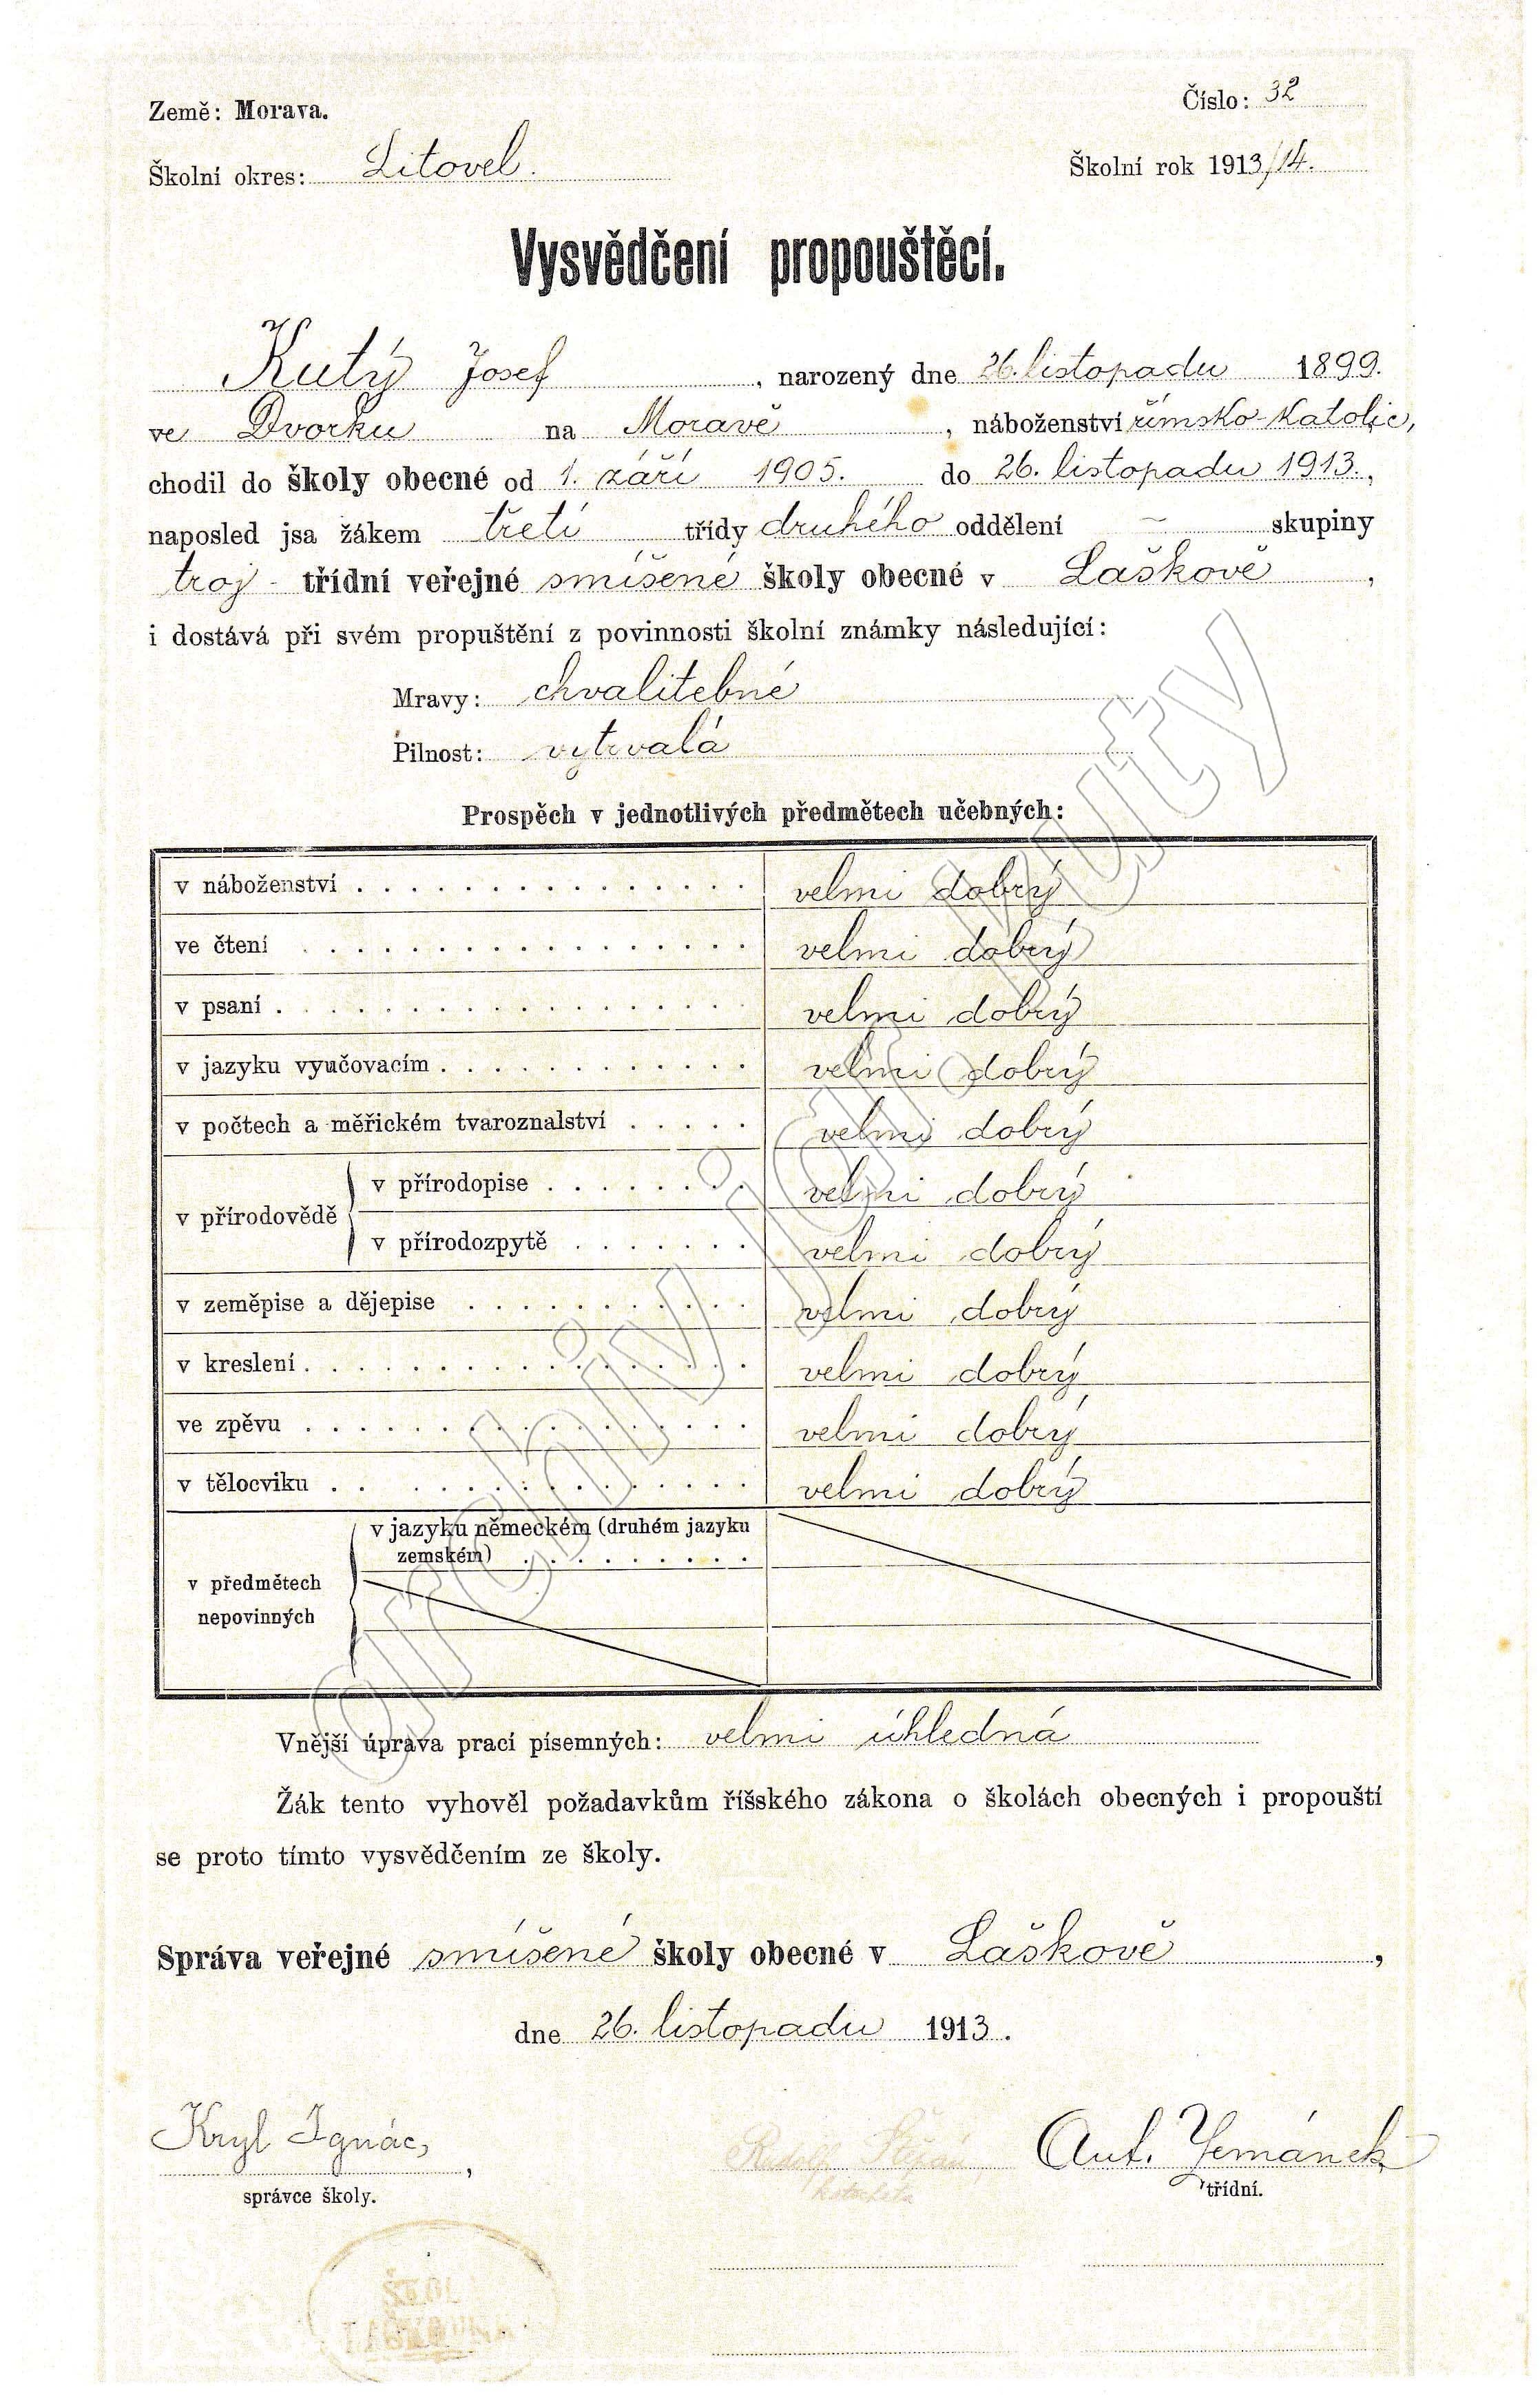 Země: Morava.
Číslo: 32
Školní okres: Litovel.
Školní rok 1913/14.
Vysvědčení propouštěcí.
Kutý Josef, narozený dne 26. listopadu 1899.
ve Dvorku na Moravě, náboženství římsko-katolic,
chodil do školy obecné od 1. září 1905. do 26. listopadu 1913.,
naposled jsa žákem třetí třídy druhého oddělení – skupiny
troj- třídní veřejné smíšené školy obecné v Laškově,
i dostává při svém propuštění z povinnosti školní známky následující:
Mravy: chvalitebné
Pilnost: vytrvalá
Prospěch v jednotlivých předmětech učebných:
v náboženství velmi dobrý
ve čtení velmi dobrý
v psaní velmi dobrý
v jazyku vyučovacím velmi dobrý
v počtech a měřickém tvaroznalství velmi dobrý
v přírodovědě
v přírodopise velmi dobrý
v přírodozpytě velmi dobrý
v zeměpise a dějepise velmi dobrý
v kreslení velmi dobrý
ve zpěvu velmi dobrý
v tělocviku velmi dobrý
v předmětech nepovinných
v jazyku německém (druhém jazyku
zemském)
Vnější úprava prací písemných: velmi úhledná
Žák tento vyhověl požadavkům říšského zákona o školách obecných i propouští
se proto tímto vysvědčením ze školy.
Správa veřejné smíšené školy obecné v Laškově,
dne 26. listopadu 1913.
Kryl Ignác,
správce školy.
Ant. Zemánek
třídní.
archiv j.d. kuty